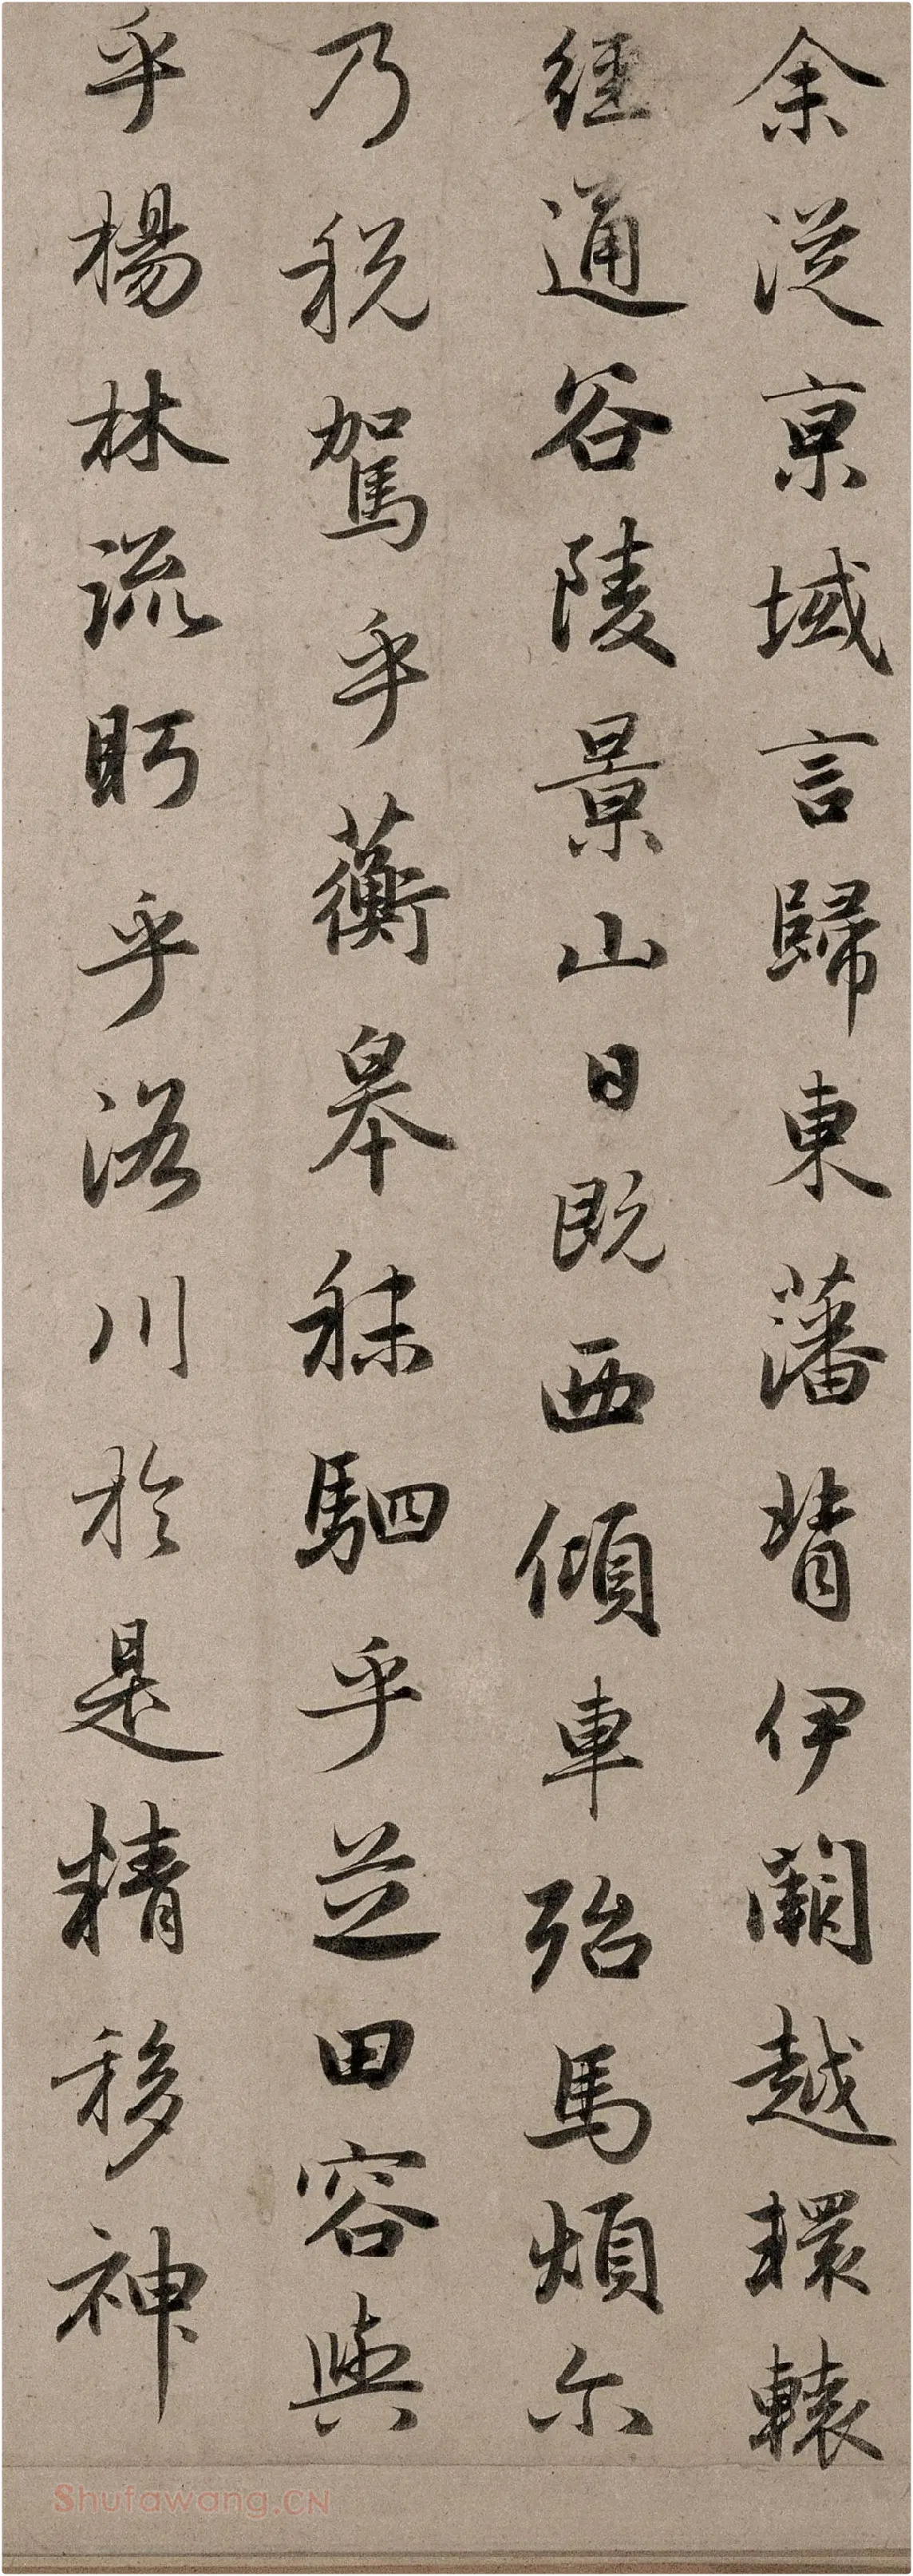 余從京域言歸東藩背伊闕越轘轅
經通谷陵景山日既西傾車殆馬煩尔
乃税駕乎蘅皋秣駟乎芝田容與
乎楊林流眄乎洛川於是精移神
Shufawang.CN